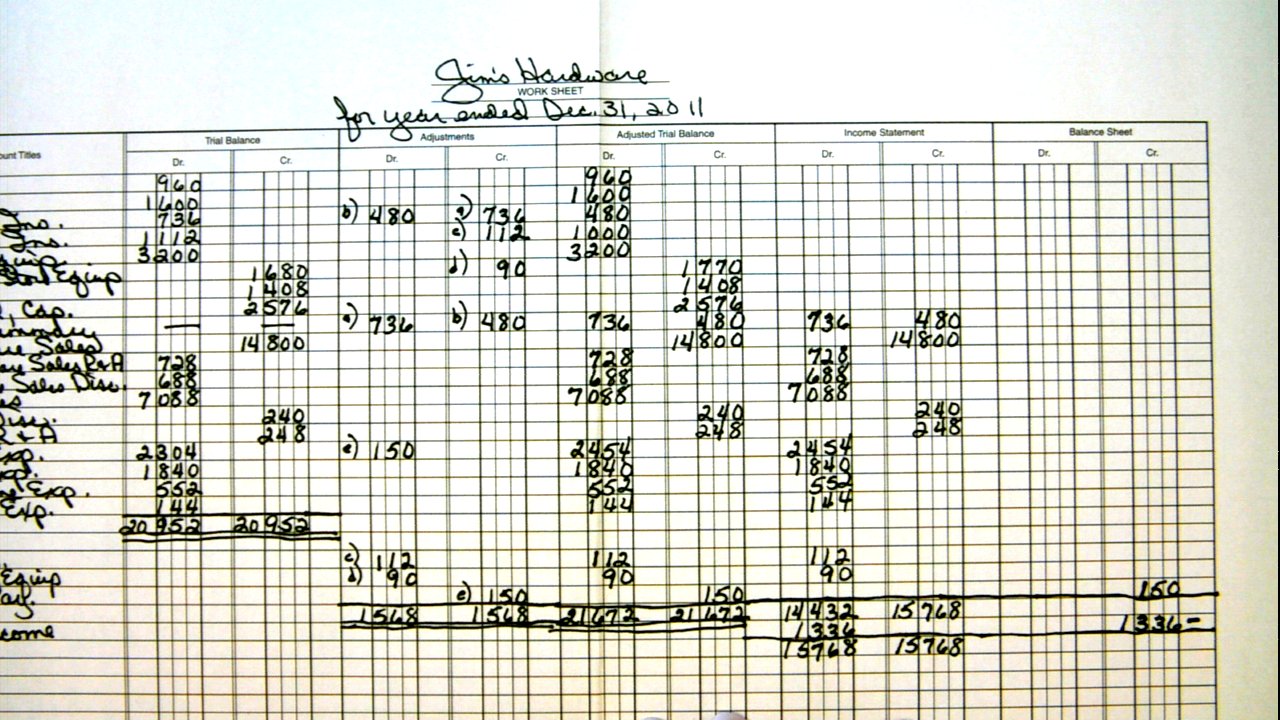 Jim's Hardware
WORK SHEET
for year ended Dec. 31, 2011
Trial Balance Adjustments Adjusted Trial Balance Income Statement Balance Sheet
unt Titles Dr. Cr. Dr. Cr. Dr. Cr. Dr. Cr. Dr. Cr.
960 960
1600 1600
Ins. 736 b) 480 a) 736 480
Ins. 1112 c) 112 1000
Equip. 3200 3200
Store Equip 1680 d) 90 1770
1408 1408
, Cap. 2576 2576
Summary — — a) 736 b) 480 736 480 736 480
Sales 14800 14800 14800
Sales R+A 728 728 728
Sales Disc. 688 688 688
es 7088 7088 7088
Disc. 240 240 240
R + A 248 248 248
Exp. 2304 e) 150 2454 2454
Exp. 1840 1840 1840
Exp. 552 552 552
Exp. 144 144 144
20952 20952
c) 112 112 112
Equip d) 90 90 90
ay. e) 150 150 150
1568 1568 21672 21672 14432 15768
come 1336 1336-
15768 15768